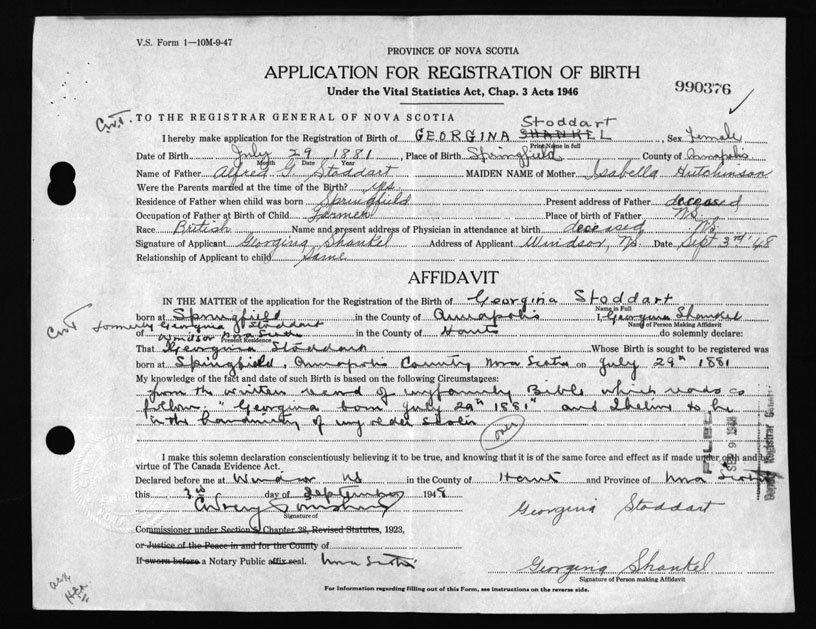 V.S. Form 1—10M-9-47
PROVINCE OF NOVA SCOTIA
APPLICATION FOR REGISTRATION OF BIRTH
Under the Vital Statistics Act, Chap. 3 Acts 1946
990376
TO THE REGISTRAR GENERAL OF NOVA SCOTIA
Stoddart
I hereby make application for the Registration of Birth of GEORGINA SHANKEL, Sex Female
Print Name in full
Date of Birth July 29 1881, Place of Birth Springfield County of Annapolis
Month Date Year
Name of Father Alfred G. Stoddart MAIDEN NAME of Mother Isabella Hutchinson
Were the Parents married at the time of the Birth? yes
Residence of Father when child was born Springfield Present address of Father deceased
Occupation of Father at Birth of Child Farmer Place of birth of Father N.S.
Race British Name and present address of Physician in attendance at birth deceased N.S.
Signature of Applicant Georgina Shankel Address of Applicant Windsor, N.S. Date Sept 3rd '48
Relationship of Applicant to child Same
AFFIDAVIT
IN THE MATTER of the application for the Registration of the Birth of Georgina Stoddart
Name in Full
born at Springfield in the County of Annapolis I, Georgina Shankel
Name of Person Making Affidavit
formerly Georgina Stoddart
of Windsor Nova Scotia in the County of Hants do solemnly declare:
Present Residence
That Georgina Stoddart Whose Birth is sought to be registered was
born at Springfield, Annapolis County, Nova Scotia on July 29th 1881
My knowledge of the fact and date of such Birth is based on the following Circumstances:
from the written record of my family Bible which reads as
follows "Georgina born July 29th 1881" and I believe to be
in the handwriting of my older sister
over
FILED
SEP 9 1948
Deputy Registrar General
I make this solemn declaration conscientiously believing it to be true, and knowing that it is of the same force and effect as if made under oath and by
virtue of The Canada Evidence Act.
Declared before me at Windsor N.S. in the County of Hants and Province of Nova Scotia
this 3rd day of September 1948
Georgina Stoddart
Signature of
Commissioner under Section 8, Chapter 38, Revised Statutes, 1923,
or Justice of the Peace in and for the County of
If sworn before a Notary Public affix seal. Nova Scotia
Georgina Shankel
Signature of Person making Affidavit
For Information regarding filling out of this Form, see instructions on the reverse side.